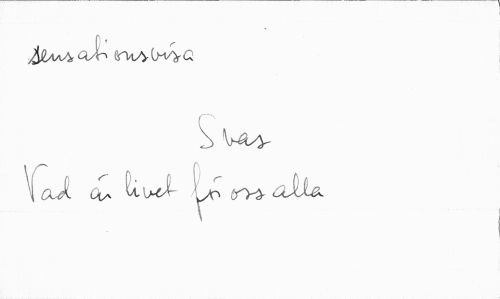 sensationsvisa
Svas
Vad är livet för oss alla